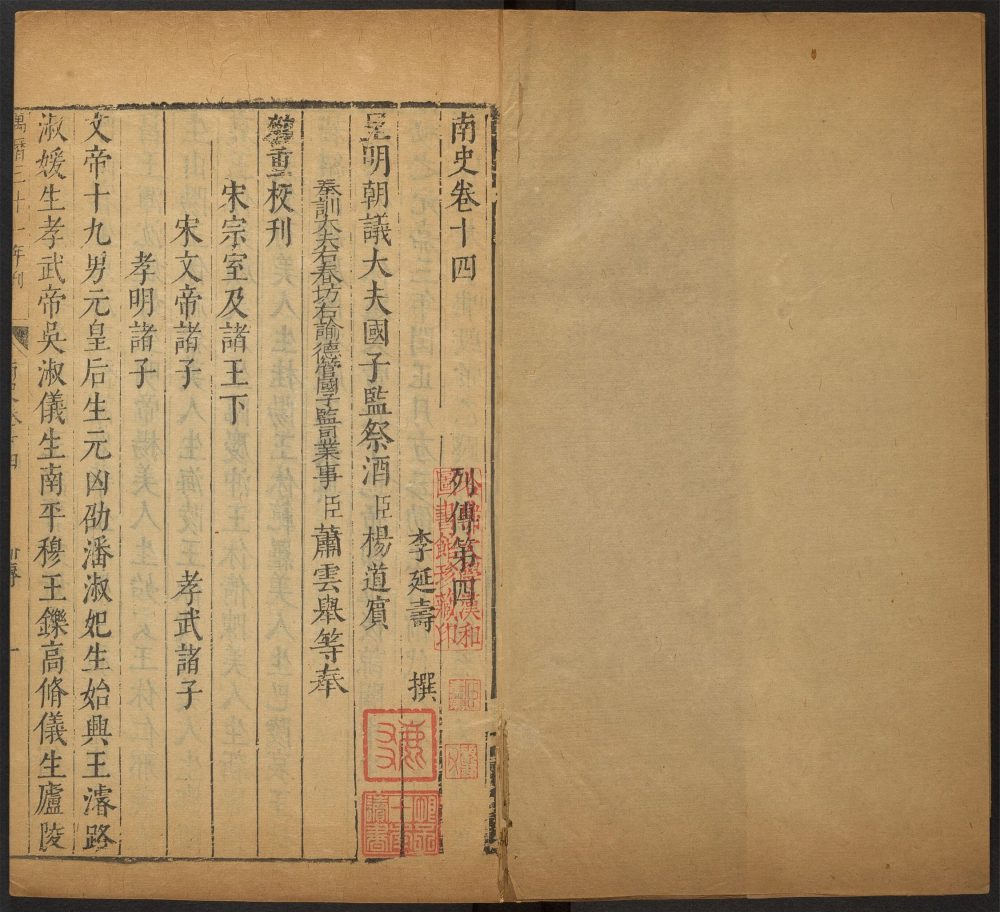 南史卷十四 列傳第四
李延壽 撰
皇明朝議大夫國子監祭酒臣楊道賓
奉訓大夫右春坊右諭德管國子監司業事臣蕭雲舉等奉
勑重校刊
宋宗室及諸王下
宋文帝諸子 孝武諸子
孝明諸子
文帝十九男元皇后生元凶劭潘淑妃生始興王濬路
淑媛生孝武帝吳淑儀生南平穆王鑠高脩儀生廬陵
萬曆三十一年刊
南史卷十四
列傳
一
漢和
圖書館珍藏印